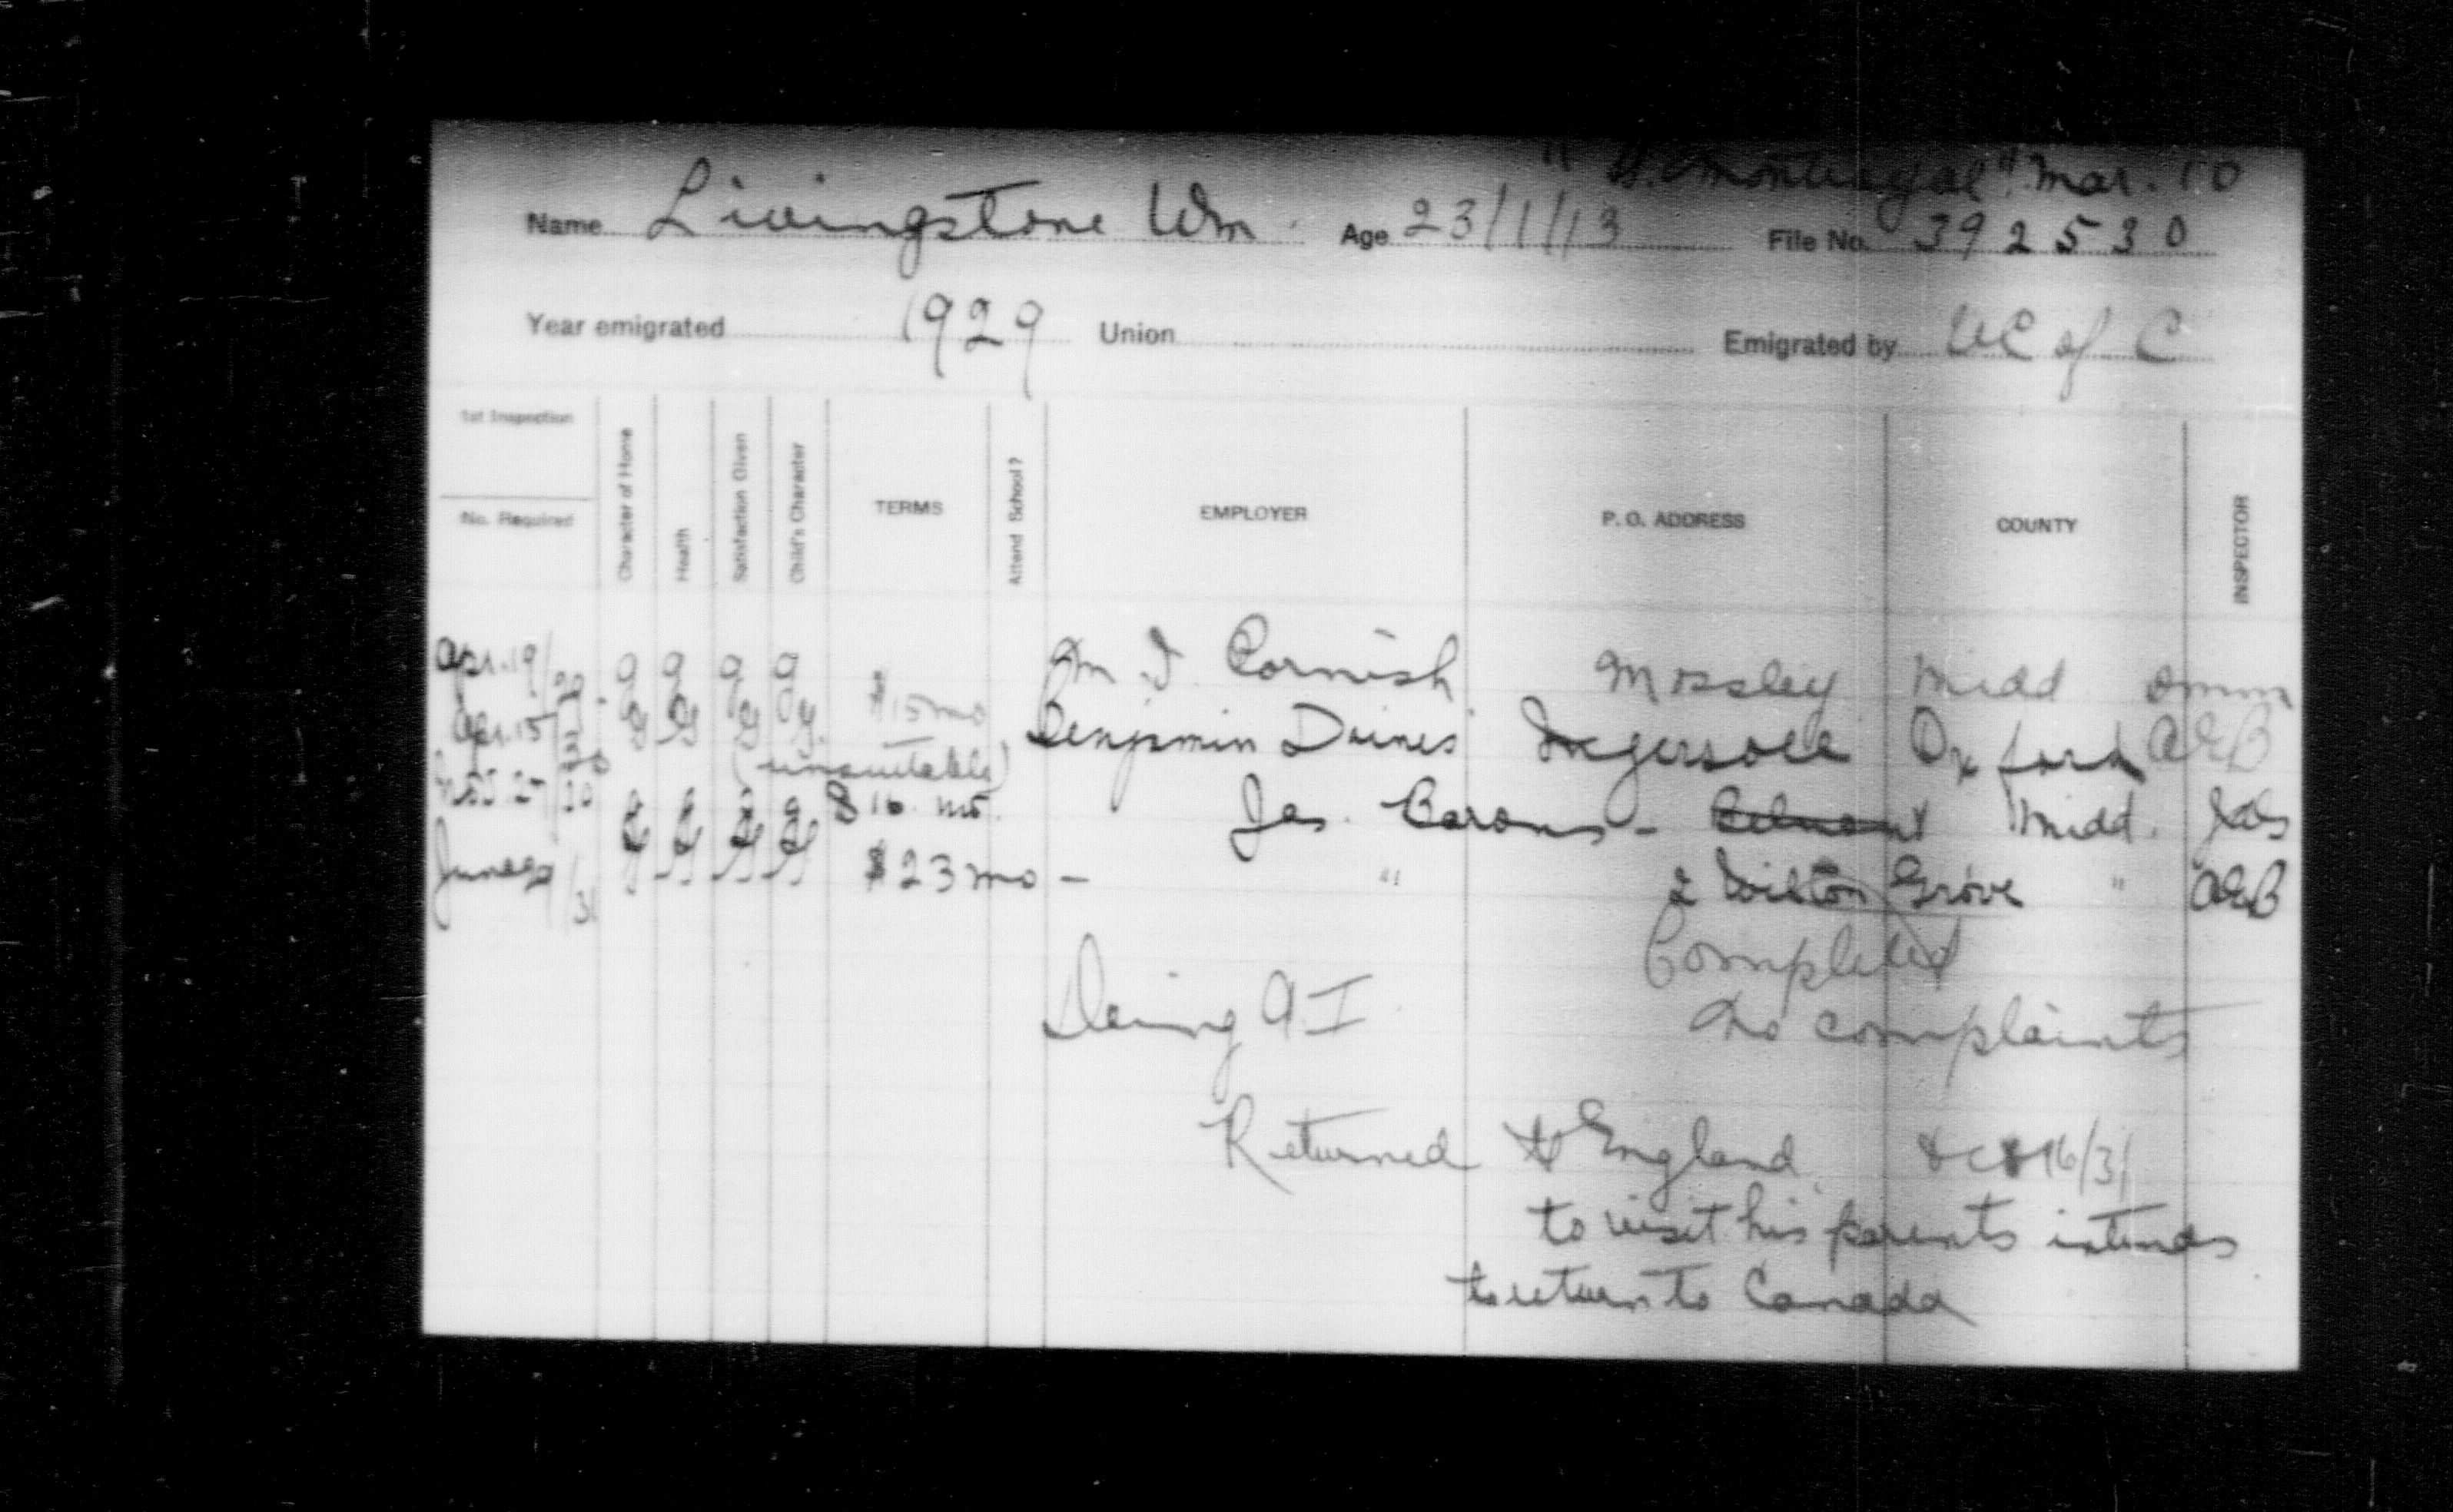 Mar. 10
Name Livingstone Wm. Age 23/1/13 File No. 392530
Year emigrated 1929 Union Emigrated by UC of C
1st Inspection
No. Required
Character of Home
Health
Satisfaction Given
Child's Character
TERMS
Attend School?
EMPLOYER
P. O. ADDRESS
COUNTY
INSPECTOR
Apr. 19/29 g g g g Cornish Mossley Midd
Apr. 15 g g g g $15 mo Benjamin Ingersoll Oxford AEB
(unsuitable)
g g g g $16 mo. Jas. Midd.
June /31 g g g g $23 mo - " Wilton Grove " AEB
Completed
Doing A I No complaints
Returned to England 16/31
to visit his parents intends
to return to Canada